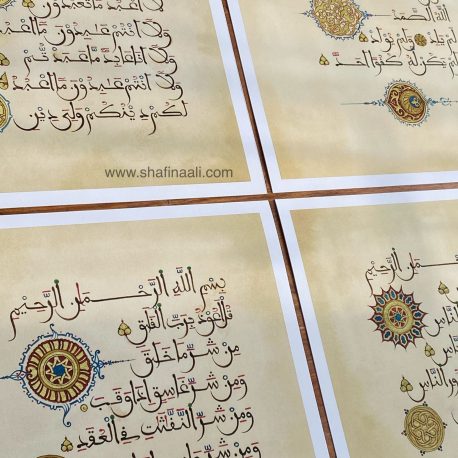 لَا أَعْبُدُ مَا تَعْبُدُونَ
وَلَا أَنتُمْ عَٰبِدُونَ مَا أَعْبُدُ
وَلَا أَنَا عَابِدٌ مَّا عَبَدتُّمْ
وَلَا أَنتُمْ عَٰبِدُونَ مَا أَعْبُدُ
لَكُمْ دِينُكُمْ وَلِيَ دِينِ
اللَّهُ الصَّمَدُ
لَمْ يَلِدْ وَلَمْ يُولَدْ
وَلَمْ يَكُن لَّهُ كُفُوًا أَحَدٌ
www.shafinaali.com
بِسْمِ اللَّهِ الرَّحْمَٰنِ الرَّحِيمِ
قُلْ أَعُوذُ بِرَبِّ الْفَلَقِ
مِن شَرِّ مَا خَلَقَ
وَمِن شَرِّ غَاسِقٍ إِذَا وَقَبَ
وَمِن شَرِّ النَّفَّٰثَٰتِ فِي الْعُقَدِ
الرَّحِيمِ
النَّاسِ
النَّاسِ
النَّاسِ